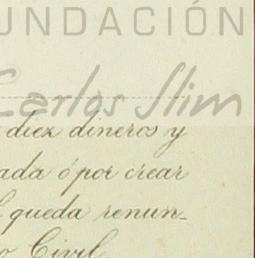 UNDACIÓN
Carlos Slim
diez dineros y
ada ó por crear
queda renun-
o Civil